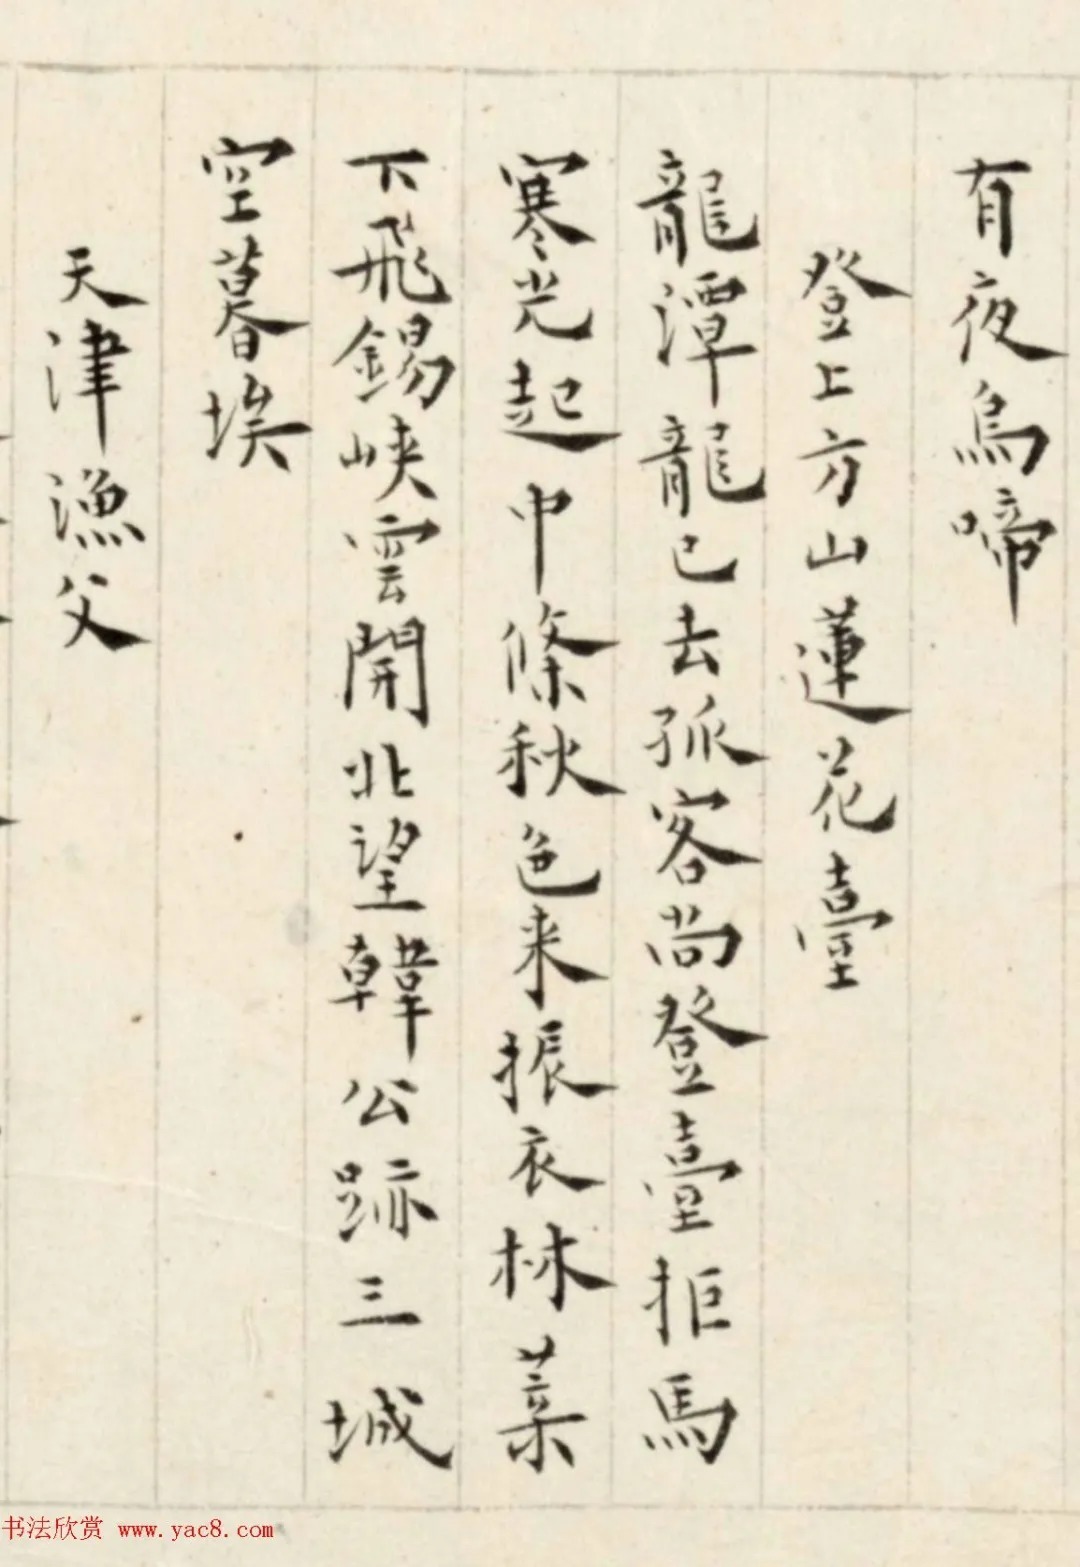 有夜烏啼
登上方山蓮花臺
龍潭龍已去孤客尚登臺拒馬
寒光起中條秋色来振衣林葉
下飛錫峽雲開北望韓公跡三城
空暮埃
天津漁父
书法欣赏 www.yac8.com